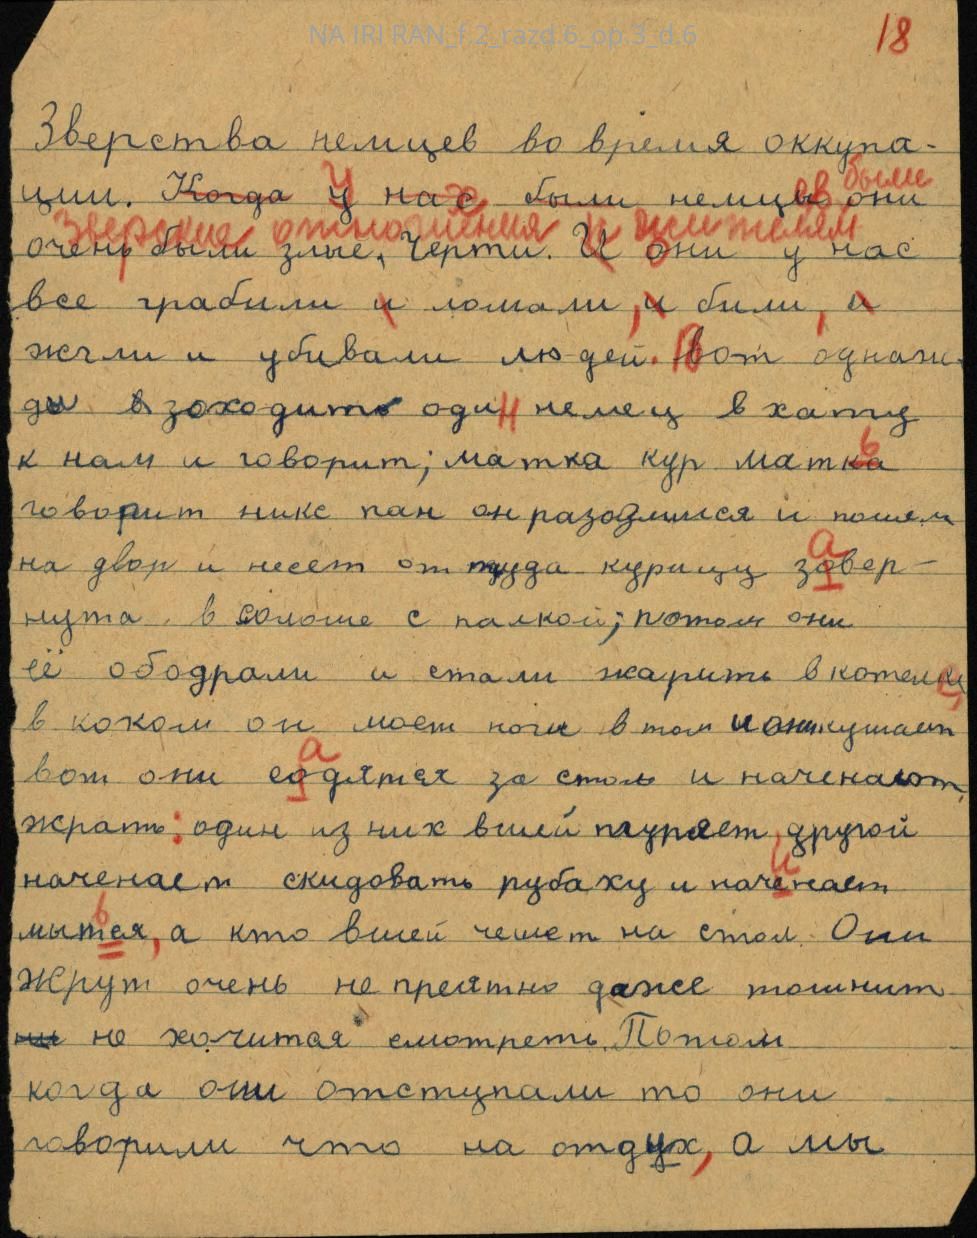 NA IRI RAN_f.2_razd.6_op.3_d.6
18
Зверства немцев во время оккупа-
ции. Когда У нас были немцы они
ев были
Зверские отношения к жителям
очень были злые, Черти. И они у нас
все грабили и ломали, и били, и
жгли и убивали людей. Вот однаж-
ды в заходить один немец в хату
к нам и говорит; матка кур матка
ь
говорит никс пан он разозлился и пошел
на двор и несет от туда курицу зовер-
а
нута в соломе с палкой; потом они
её ободрали и стали жарить в котелке,
в коком он моет ноги в том и они кушает
вот они содятся за столь и наченают
а
жрать: один из них вшей пуряет, другой
наченает скидовать рубаху и наченает
и
мытся, а кто вшей чешет на стол. Они
ь
Жрут очень не преятно даже тошнит
не хочится смотреть. Потом
когда они отступали то они
говорили что на отдух, а мы